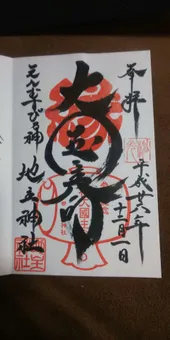 奉拝
平成廿六年十二月一日
大国主命
えんむすびの神
地主神社